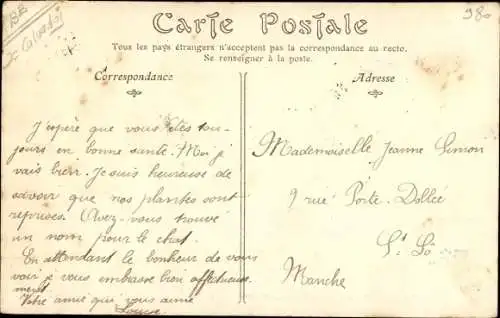 BE
Calvados
980
Carte Postale
Tous les pays étrangers n'acceptent pas la correspondance au recto.
Se renseigner à la poste.
Correspondance
J'espère que vous êtes tou-
jours en bonne santé. Moi je
vais bien. Je suis heureuse de
savoir que nos plantes sont
reprises. Avez-vous trouvé
un nom pour le chat.
En attendant le bonheur de vous
voir je vous embrasse bien affectueuse
ment.
Votre amie qui vous aime
Louise.
Adresse
Mademoiselle Jeanne Simon
9 rue Porte-Dollée
St Lô
Manche